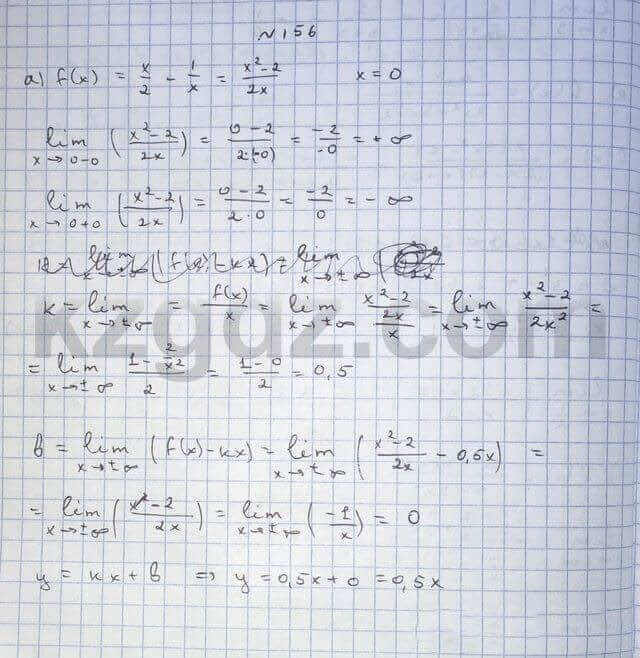 №156
а) f(x) = x/2 - 1/x = (x²-2)/2x   x = 0
lim x→0-0 ((x²-2)/2x) = (0-2)/(2·(-0)) = -2/-0 = +∞
lim x→0+0 ((x²-2)/2x) = (0-2)/(2·0) = -2/0 = -∞
k = lim x→±∞ = f(x)/x = lim x→±∞ ((x²-2)/2x)/x = lim x→±∞ (x²-2)/2x² =
= lim x→±∞ (1-2/x²)/2 = (1-0)/2 = 0,5
b = lim x→±∞ (f(x)-kx) = lim x→±∞ ((x²-2)/2x - 0,5x) =
= lim x→±∞ ( -2)/2x) = lim x→±∞ (-1/x) = 0
y = kx + b ⇒ y = 0,5x + 0 = 0,5x
kzgdz.com